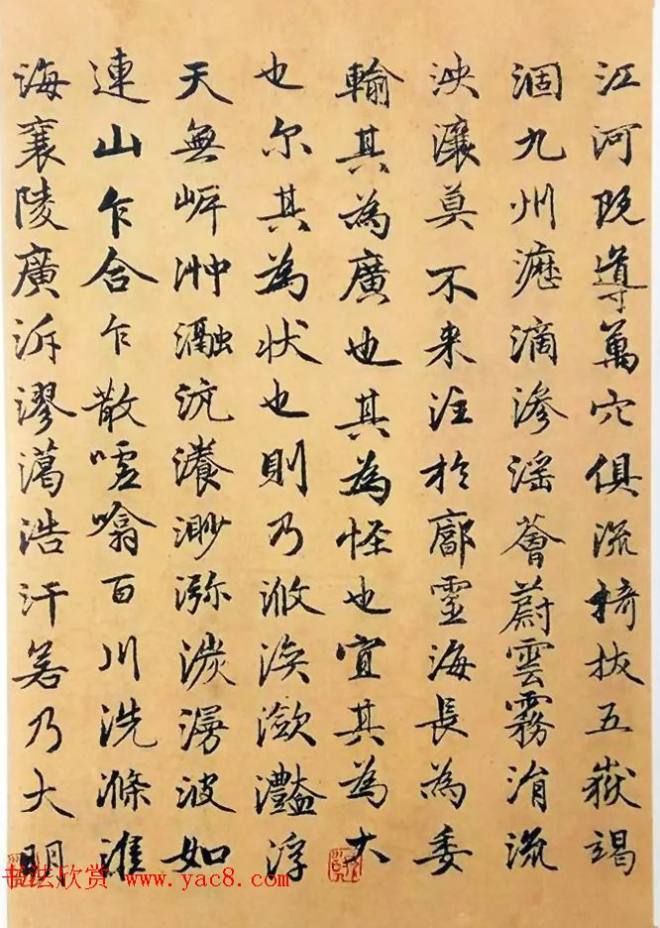 江河既導萬穴俱流掎拔五嶽竭
涸九州瀝滴滲淫薈蔚雲霧涓流
泱瀼莫不来注於廓靈海長為委
輸其為廣也其為怪也宜其為大
也尔其為状也則乃浟湙瀲灔浮
天無岸沖瀜沆瀁渺瀰湠漫波如
連山乍合乍散噓噏百川洗滌淮
海襄陵廣泝㵧㵧浩汗若乃大明
书法欣赏 www.yac8.com